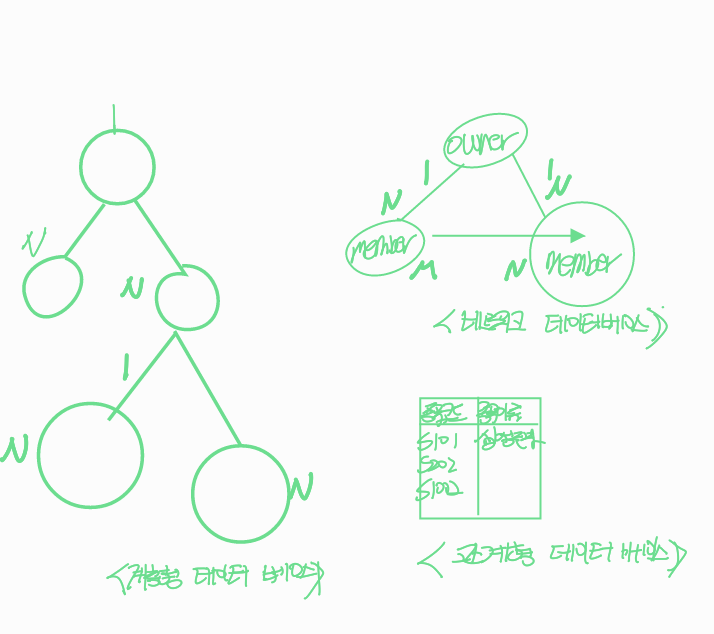 1
N
N
1
N
N
<계층형 데이터 베이스>
owner
1
1
N
N
member
M
N
Member
<네트워크 데이터베이스>
S101
S202
S1002
<관계형 데이터 베이스>